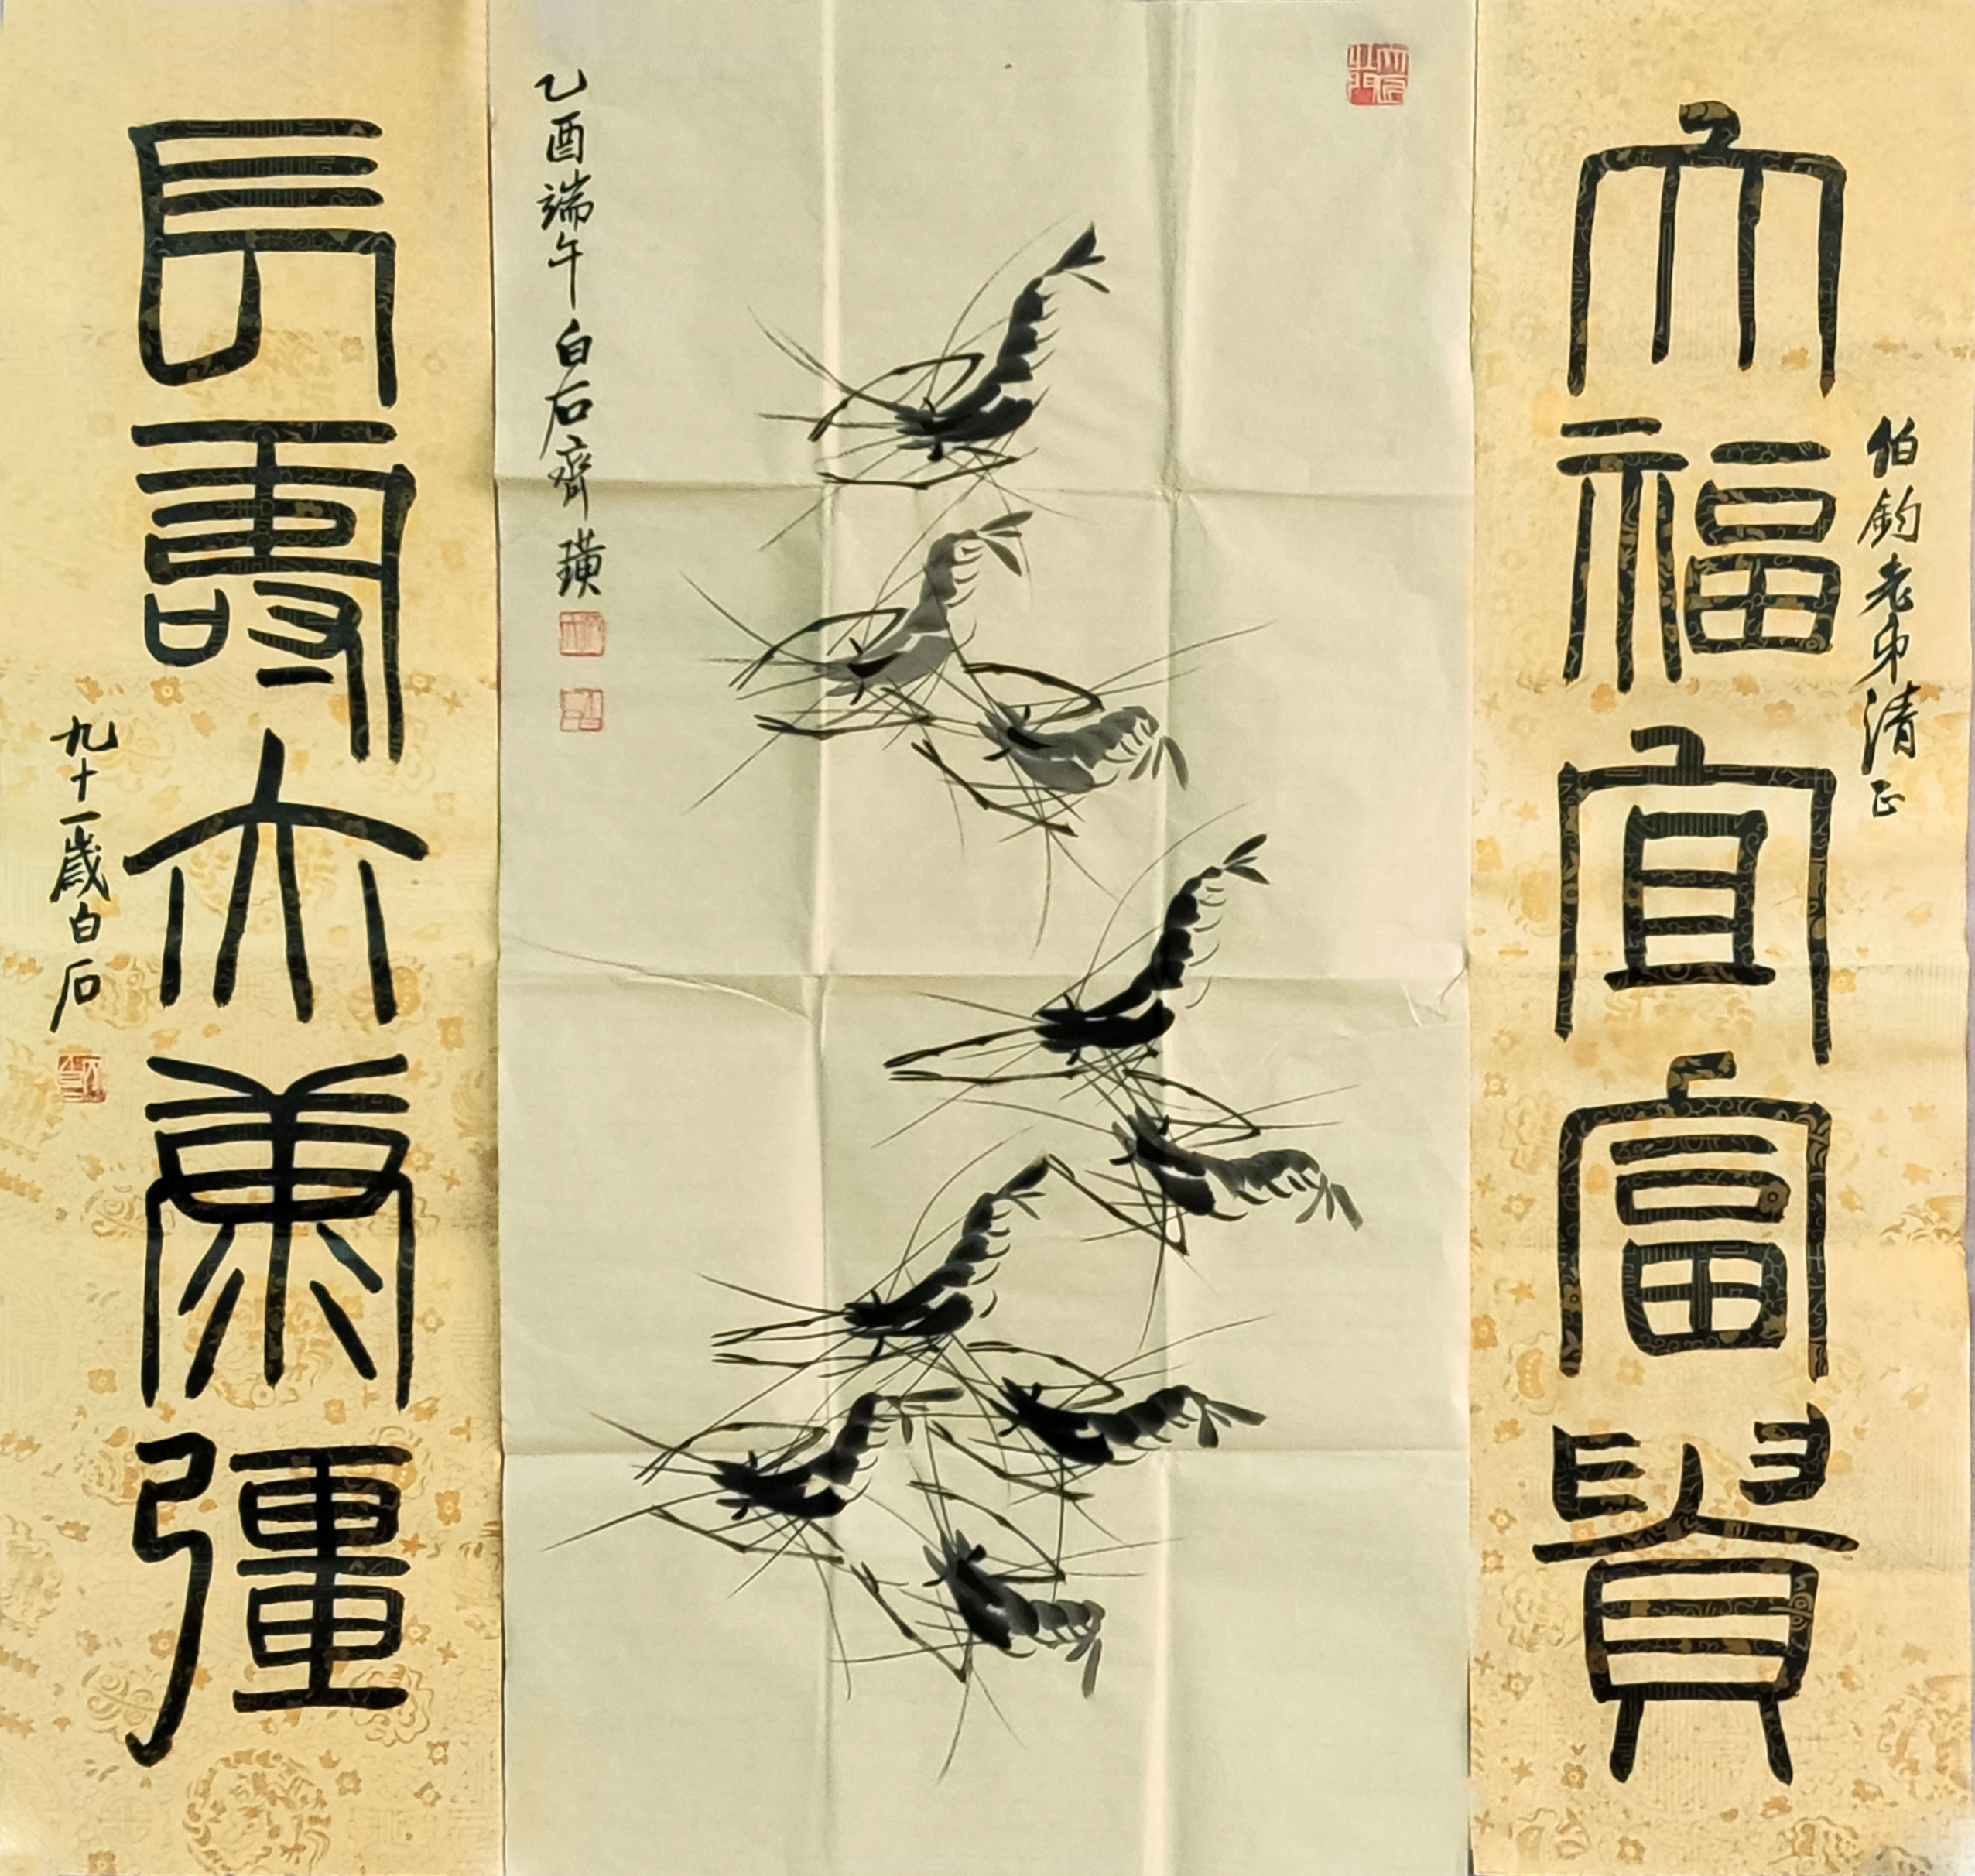 伯鈞老弟清正
大福宜富貴
大匠之門
乙酉端午白石齊璜
長壽亦康彊
九十一歲白石